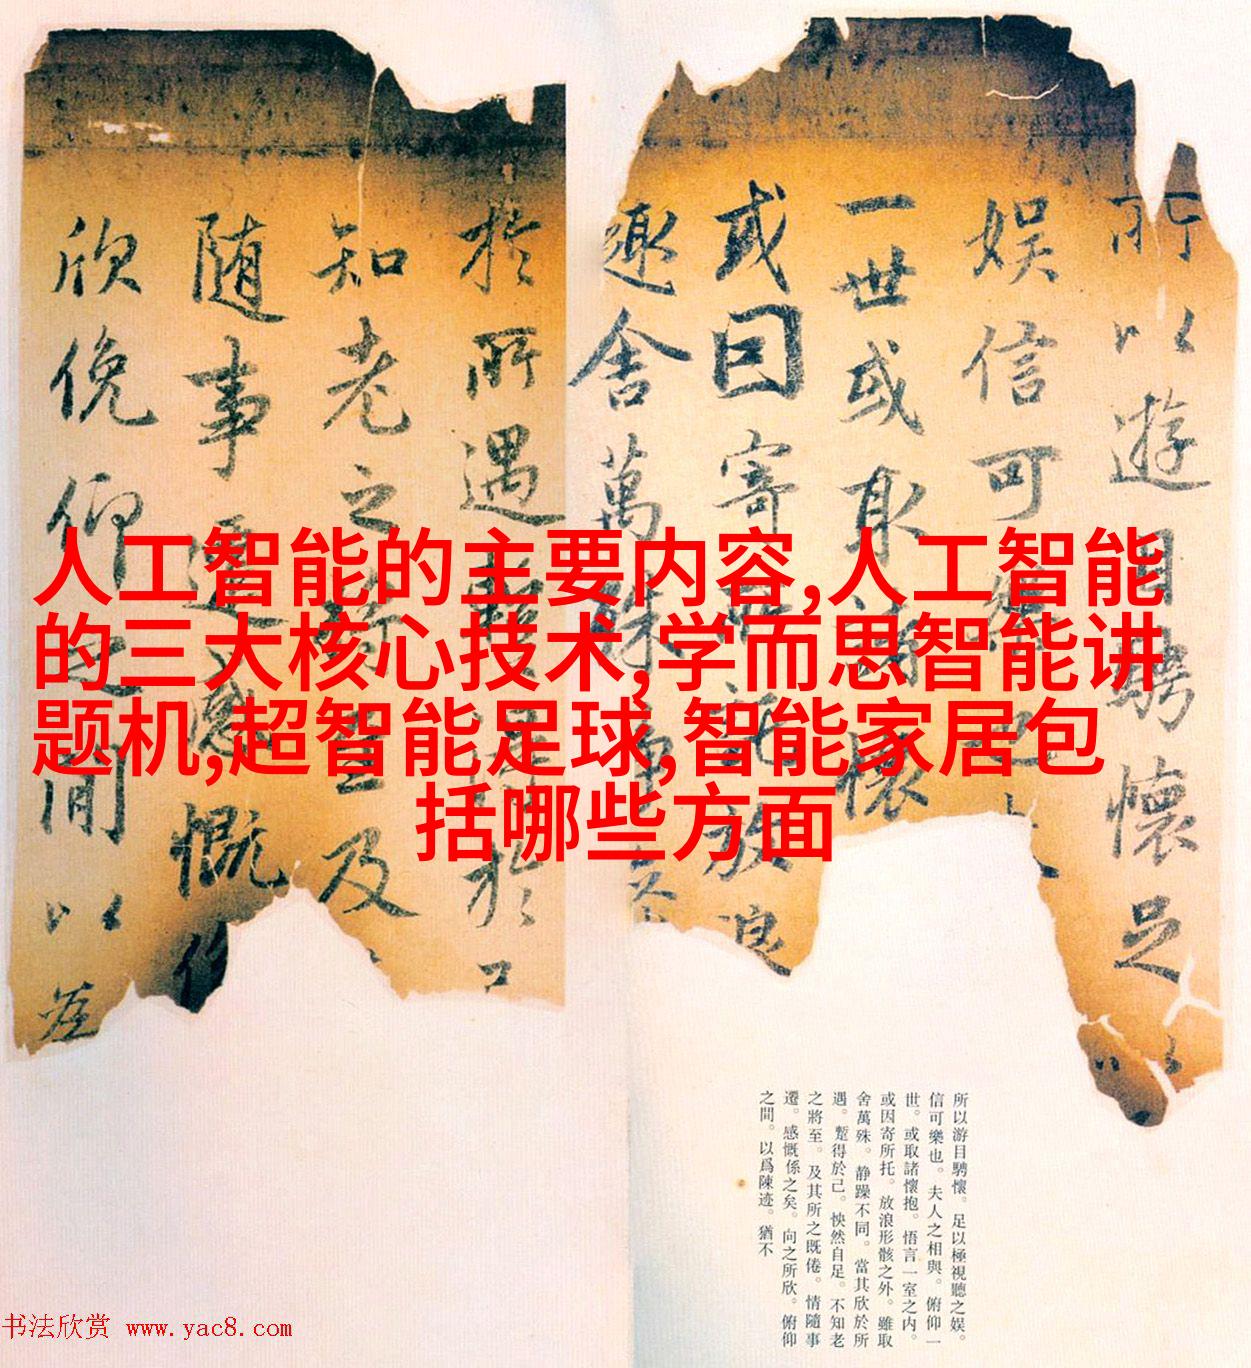 人工智能的主要内容,人工智能
的三大核心技术,学而思智能讲
题机,超智能足球,智能家居包
括哪些方面
所以遊目騁懷足以
娱信可也
一世或取諸懷
或因寄所託放浪
趣舍萬殊
於所遇於己
知老之將至及
随事遷感慨係
欣俛仰之間以為
所以游目騁懷。足以極視聽之娱。
信可樂也。夫人之相與。俯仰一
世。或取諸懷抱。悟言一室之内。
或因寄所托。放浪形骸之外。雖取
舍萬殊。静躁不同。當其欣於所
遇。蹔得於己。怏然自足。不知老
之將至。及其所之既倦。情隨事
遷。感慨係之矣。向之所欣。俯仰
之間。以爲陳迹。猶不
书法欣赏 www.yac8.com